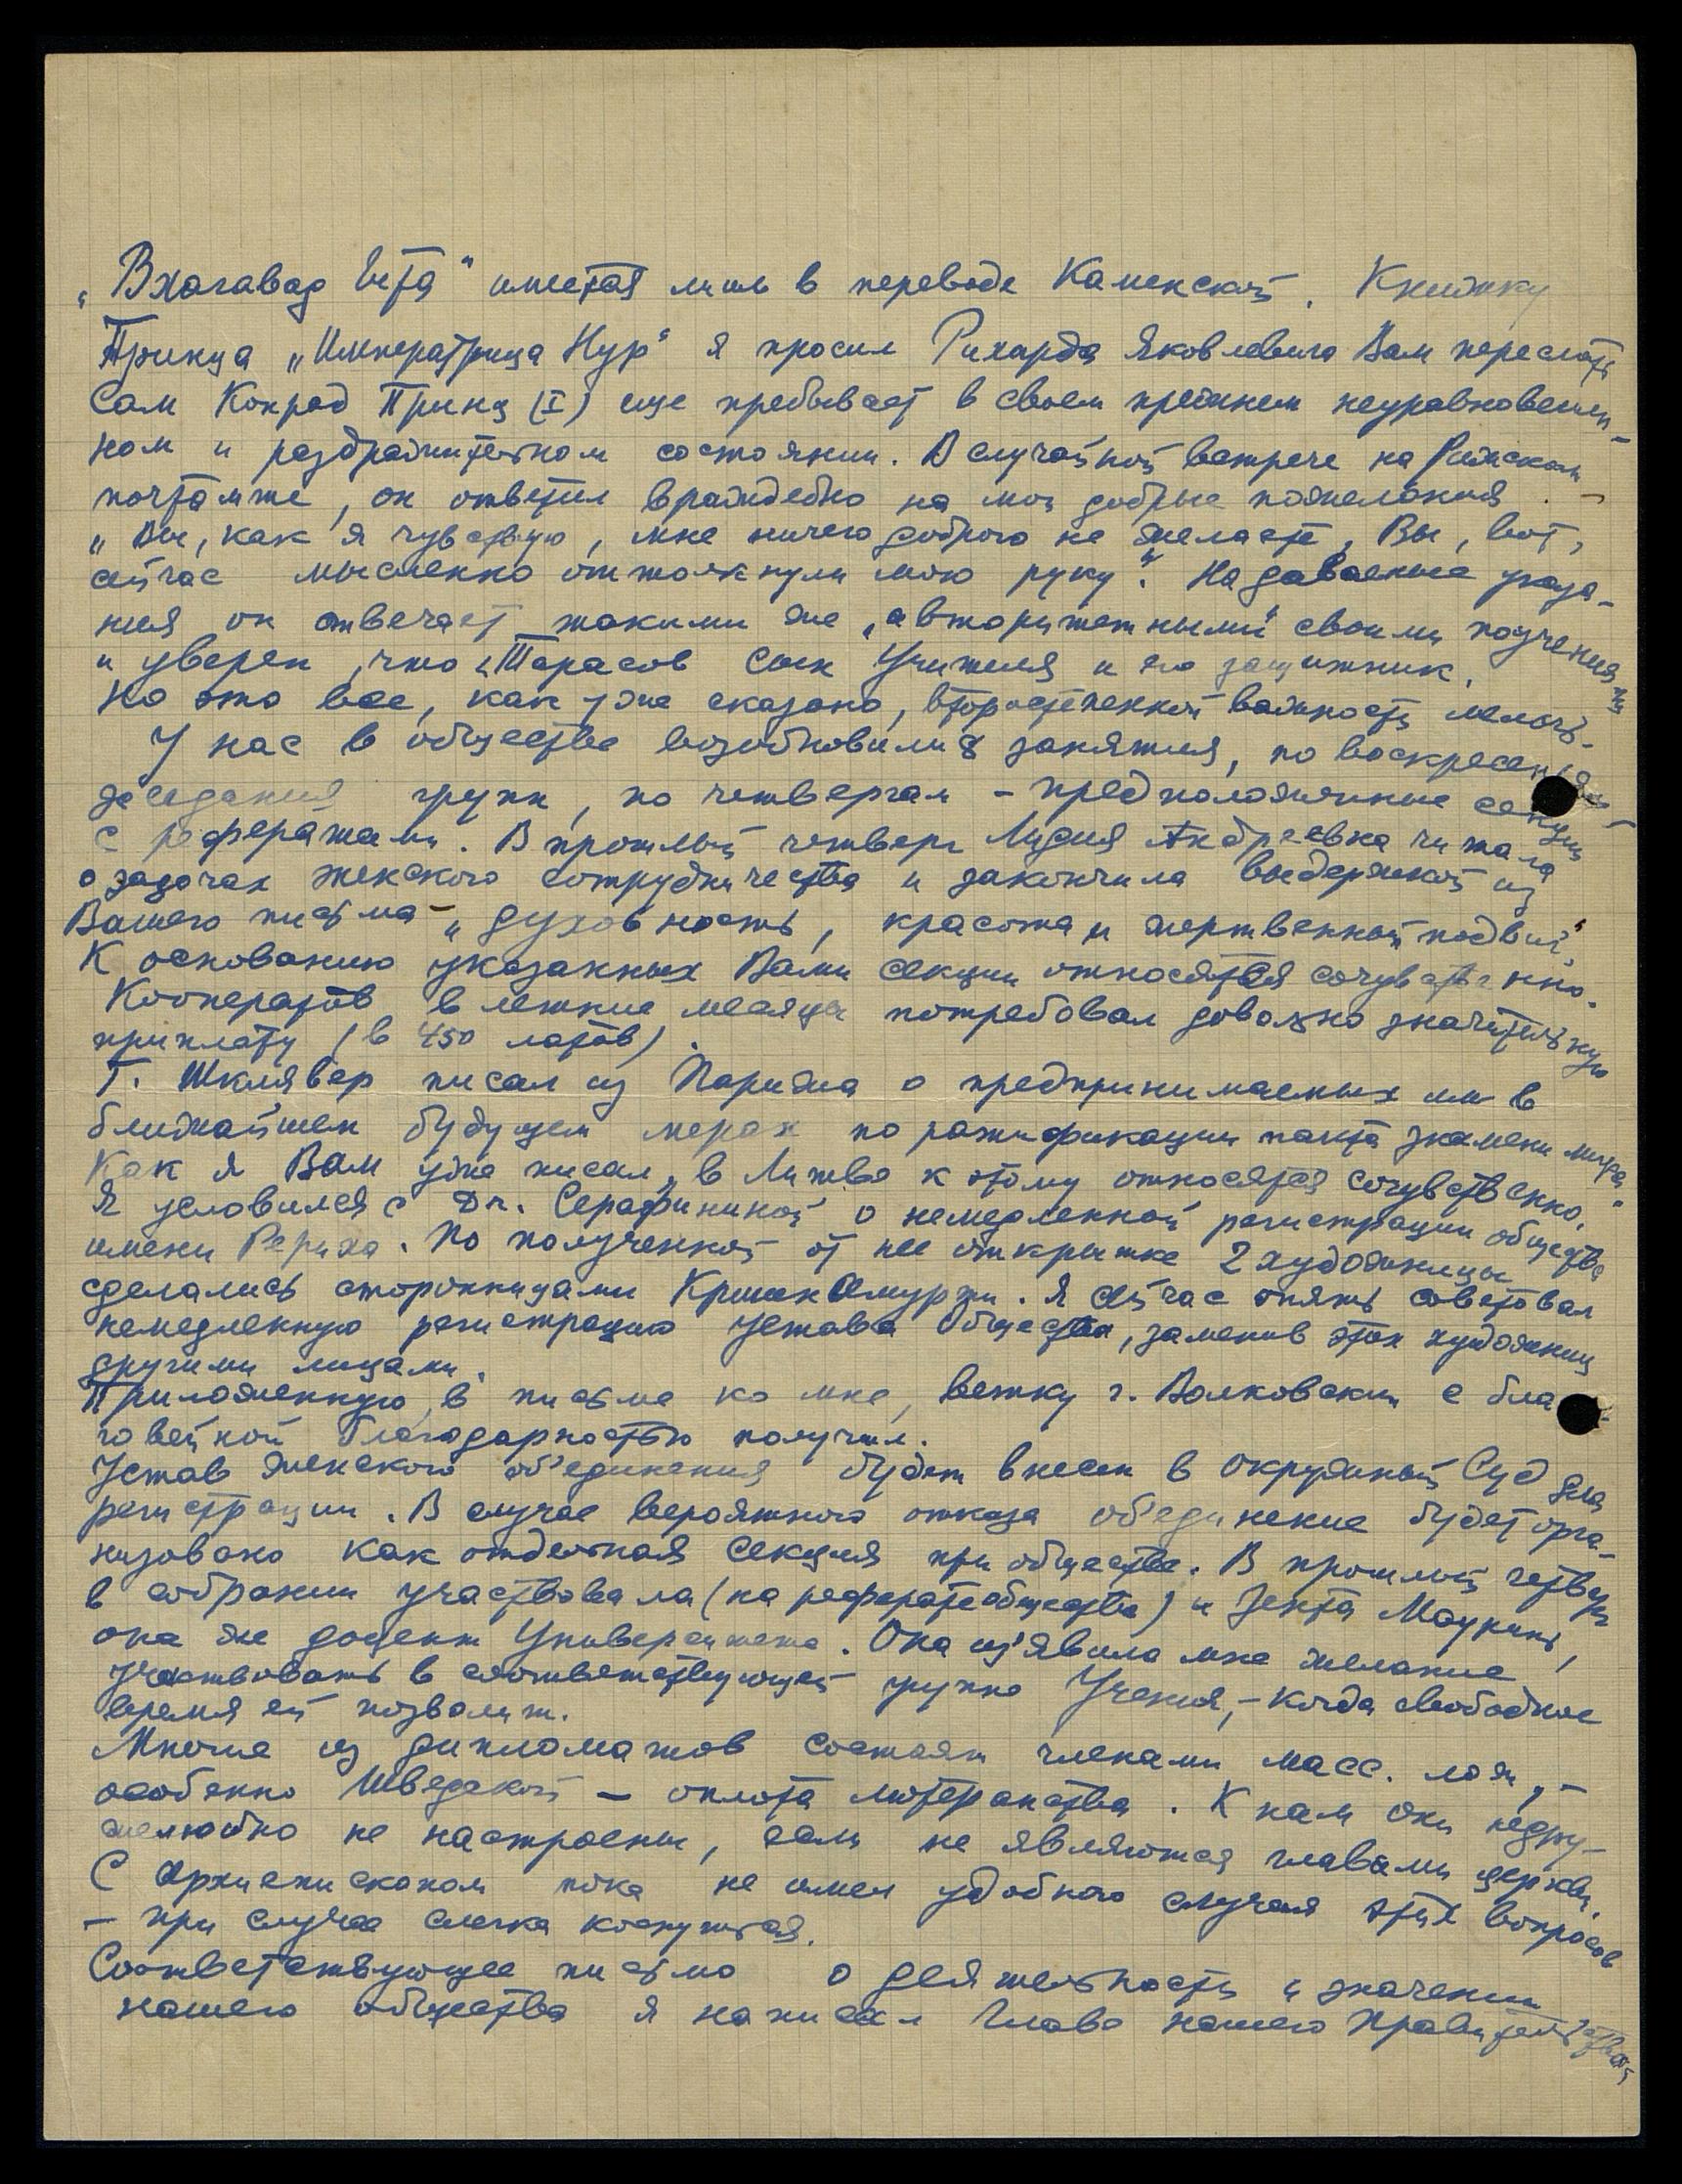 „Вхагавад Гита" имеется лишь в переводе Каменской. Книжку
Принца „Императрица Нур" я просил Рихарда Яковлевича Вам переслать.
Сам Конрад Принц (I) еще пребывает в своем прежнем неуравновешен-
ном и раздражительном состоянии. В случайной встрече на Рижском
почтамте, он ответил враждебно на мои добрые пожелания. –
„Вы, как я чувствую, мне ничего доброго не желаете, Вы, вот,
сейчас мысленно оттолкнули мою руку". На даваемые указа-
ния он отвечает такими же „авторитетными" своими поучениями
и уверен, что Тарасов сын Учителя и его защитник.
Но это все, как уже сказано, второстепенной важности мелочь.
У нас в обществе возобновились занятия, по воскресеньям
заседания групп, по четвергам – предположенные секции
с рефератами. В прошлый четверг Лидия Андреевна читала
о задачах женского сотрудничества и закончила выдержкой из
Вашего письма – „духовность, красота и жертвенный подвиг".
К основанию указанных Вами секции относятся сочувственно.
Кооператив в летние месяцы потребовал довольно значительную
приплату (в 450 латов).
Г. Шклявер писал из Парижа о предпринимаемых им в
ближайшем будущем мерах по ратификации пакта знамени мира.
Как я Вам уже писал, в Литве к этому относятся сочувственно.
Я условился с Dr. Серафининой о немедленной регистрации общества
имени Рериха. По полученной от нее открытке 2 художницы
сделались сторонницами Кришнамурти. Я сейчас опять советовал
немедленную регистрацию Устава Общества, заменив этих художниц
другими лицами.
Приложенную в письме ко мне, ветку г. Волковский с бла-
говейной благодарностью получил.
Устав женского об'единения будет внесен в Окружный Суд для
регистрации. В случае вероятного отказа об'единение будет орга-
низовано как отдельная Секция при обществе. В прошлый четверг
в собрании участвовала (на реферате общества) и Зента Мауринь,
она же доцент Университета. Она из'явила мне желание
участвовать в соответствующей группе Учения, – когда свободное
время ей позволит.
Многие из дипломатов состоят членами масс. лож, –
особенно Шведской – оплота лютеранства. К нам они недру-
желюбно не настроены, если не являются главами церкви.
С Архиепископом пока не имел удобного случая этих вопросов
– при случае слегка коснуться.
Соответствующее письмо о деятельности и значении
нашего общества я написал Главе нашего Правительства,